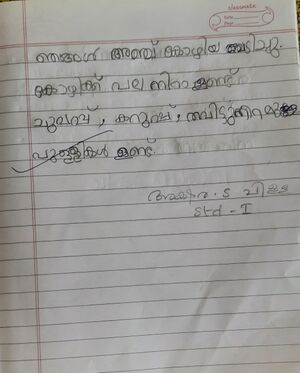 classmate
Date
Page
ഞങ്ങൾ അഞ്ച് കോഴിയെ മേടിച്ചു.
കോഴിക്ക് പല നിറം ഉണ്ട്
ചുവപ്പ്, കറുപ്പ്, തവിട്ടുനിറമുള്ള
പുള്ളികൾ ഉണ്ട്.
S
Std - I